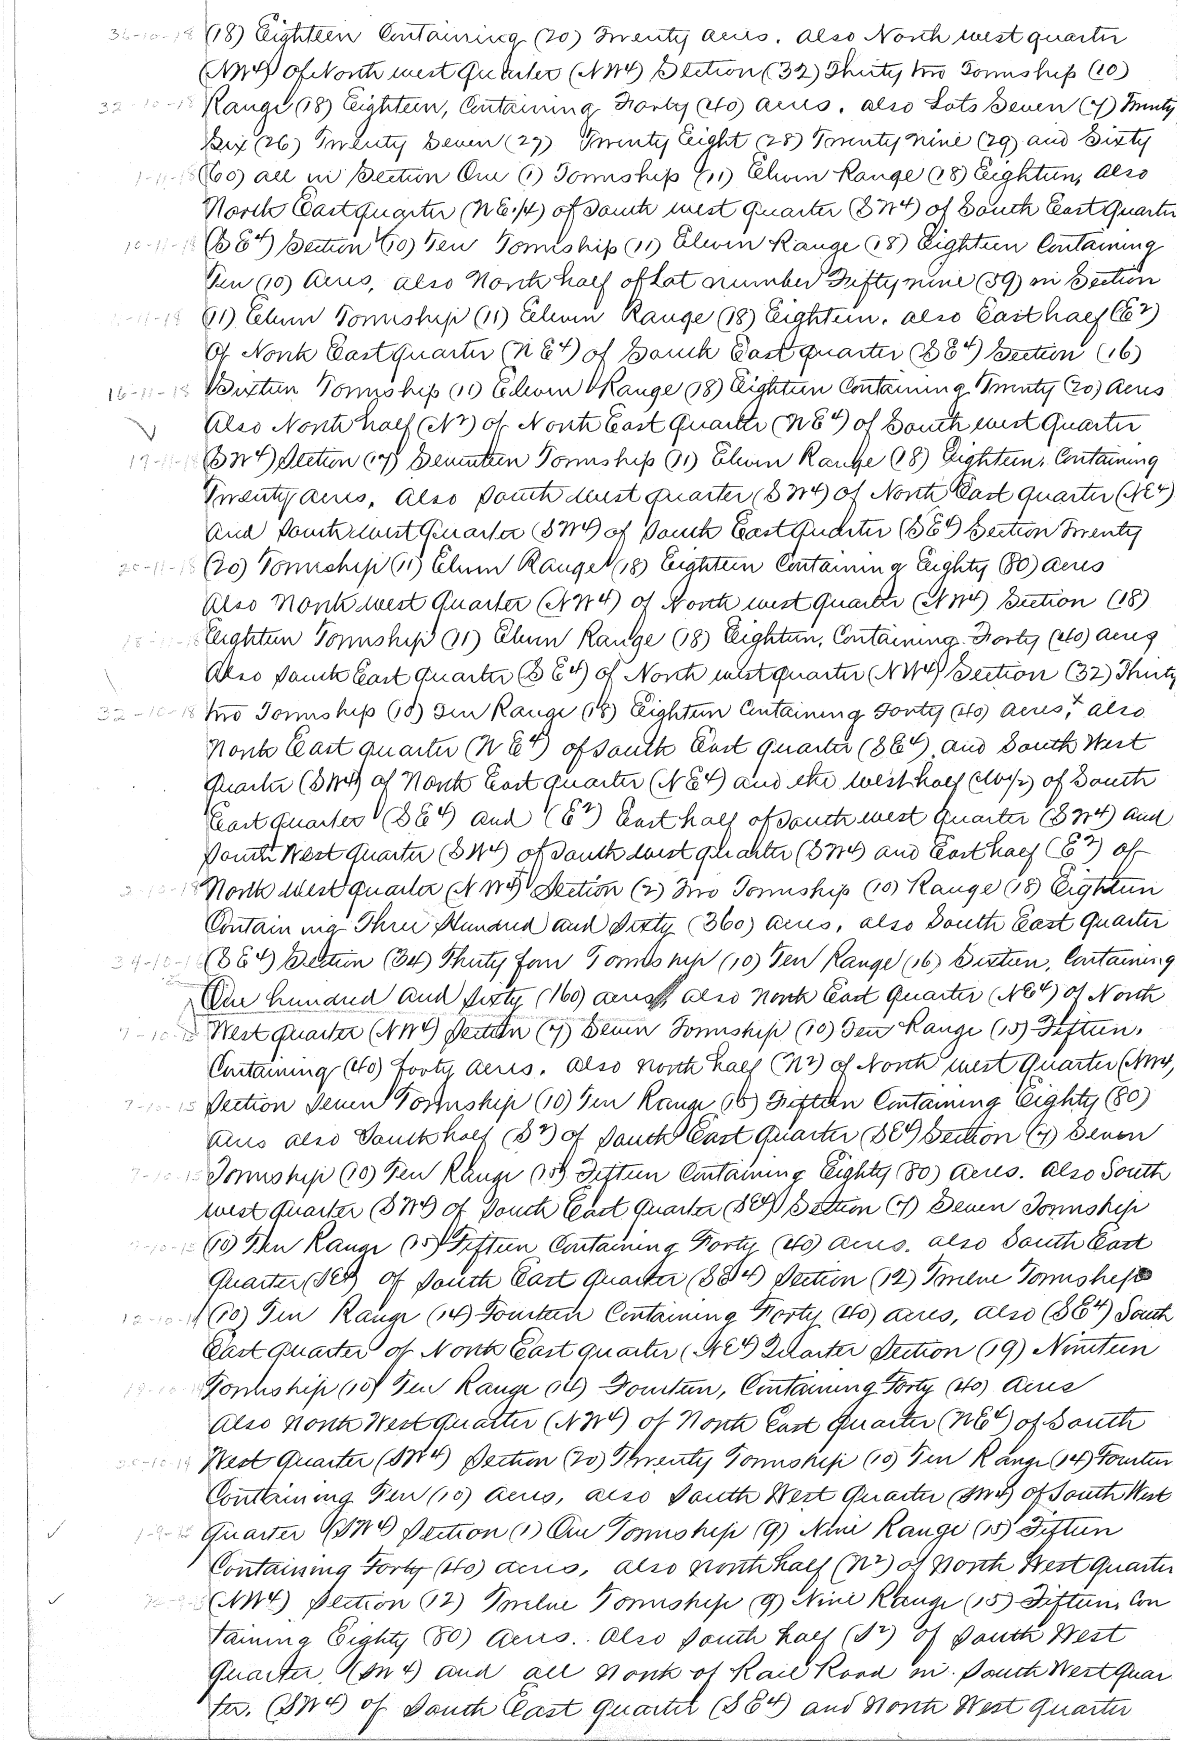 36-10-18 (18) Eighteen Containing (20) Twenty acres. also North west quarter
(NW4) of North west Quarter (NW4) Section (32) Thirty two Township (10)
32-10-18 Range (18) Eighteen, Containing Forty (40) acres. also Lots Seven (7) Twenty
Six (26) Twenty Seven (27) Twenty Eight (28) Twenty nine (29) and Sixty
1-11-18 (60) all in Section One (1) Township (11) Eleven Range (18) Eighteen, Also
North East quarter (NE1/4) of South west Quarter (SW4) of South East Quarter
10-11-18 (SE4) Section (10) Ten Township (11) Eleven Range (18) Eighteen Containing
Ten (10) Acres, also North half of Lot number Fifty nine (59) in Section
11-18 (11) Eleven Township (11) Eleven Range (18) Eighteen. also East half (E2)
Of North East quarter (NE4) of South East quarter (SE4) Section (16)
16-11-18 Sixteen Township (11) Eleven Range (18) Eighteen Containing Twenty (20) Acres
Also North half (N2) of North East Quarter (NE4) of South west Quarter
17-11-18 (SW4) Section (17) Seventeen Township (11) Eleven Range (18) Eighteen, Containing
Twenty acres, also South west quarter (SW4) of North East quarter (NE4)
and South west Quarter (SW4) of South East Quarter (SE4) Section Twenty
20-11-18 (20) Township (11) Eleven Range (18) Eighteen Containing Eighty (80) acres
Also North west Quarter (NW4) of North west Quarter (NW4) Section (18)
18-11-18 Eighteen Township (11) Eleven Range (18) Eighteen, Containing Forty (40) acres
Also South East Quarter (SE4) of North west quarter (NW4) Section (32) Thirty
32-10-18 two Township (10) Ten Range (18) Eighteen Containing Forty (40) acres, also
North East quarter (NE4) of South East Quarter (SE4) and South West
Quarter (SW4) of North East quarter (NE4) and the west half (W1/2) of South
East quarter (SE4) and (E2) East half of South west quarter (SW4) and
South West Quarter (SW4) of South west quarter (SW4) and East half (E2) of
2-10-18 North west quarter (NW4) Section (2) Two Township (10) Range (18) Eighteen
Containing Three Hundred and Sixty (360) acres, also South East Quarter
34-10-16 (SE4) Section (34) Thirty four Township (10) Ten Range (16) Sixteen, Containing
One hundred and Sixty (160) acres, also North East Quarter (NE4) of North
7-10-15 West quarter (NW4) Section (7) Seven Township (10) Ten Range (15) Fifteen.
Containing (40) forty acres. also north half (N2) of North west Quarter (NW4,
7-10-15 Section Seven Township (10) Ten Range (15) Fifteen Containing Eighty (80)
acres also South half (S2) of South East Quarter (SE4) Section (7) Seven
7-10-15 Township (10) Ten Range (15) Fifteen Containing Eighty (80) acres. also South
west quarter (SW4) of South East Quarter (SE4) Section (7) Seven Township
7-10-15 (10) Ten Range (15) Fifteen Containing Forty (40) acres. also South East
Quarter (SE4) of South East Quarter (SE4) Section (12) Twelve Township
12-10-14 (10) Ten Range (14) Fourteen Containing Forty (40) acres, also (SE4) South
East quarter of North East quarter (NE4) Quarter Section (19) Nineteen
19-10-14 Township (10) Ten Range (14) Fourteen, Containing Forty (40) Acres
Also North West Quarter (NW4) of North East Quarter (NE4) of South
20-10-14 West Quarter (SW4) Section (20) Twenty Township (10) Ten Range (14) Fourteen
Containing Ten (10) Acres, also South West Quarter (SW4) of South West
1-9-15 Quarter (SW4) Section (1) One Township (9) Nine Range (15) Fifteen
Containing Forty (40) acres, also North half (N2) of North West Quarter
(NW4) Section (12) Twelve Township (9) Nine Range (15) Fifteen, Con
taining Eighty (80) Acres. Also South half (S2) of South West
Quarter, (SW4) and all North of Rail Road in South West Quar
ter, (SW4) of South East Quarter (SE4) and North West Quarter